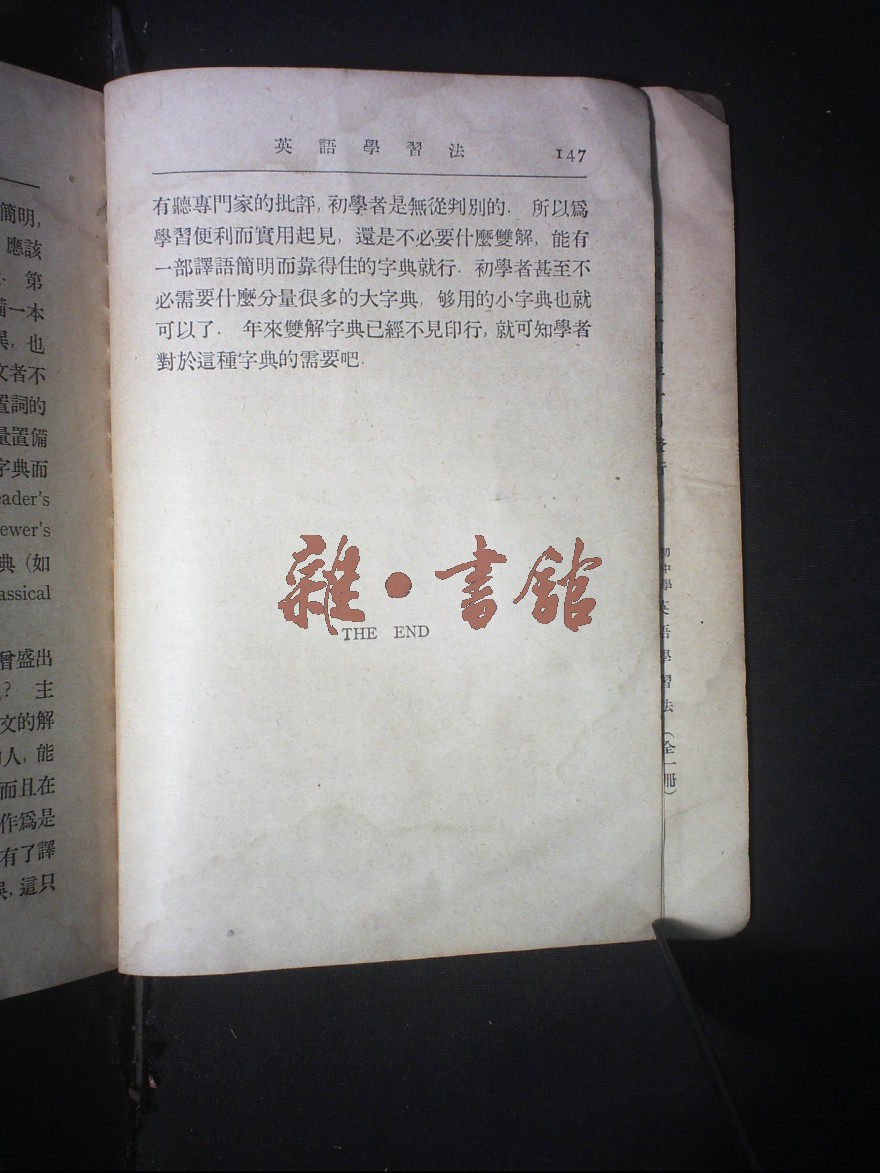 簡明,
應該
第
備一本
誤, 也
文者不
置詞的
量置備
字典而
eader's
ewer's
典 (如
assical
曾盛出
? 主
文的解
人, 能
而且在
作爲是
有了譯
誤, 這只
英語學習法 147
有聽專門家的批評, 初學者是無從判別的. 所以爲
學習便利而實用起見, 還是不必要什麼雙解, 能有
一部譯語簡明而靠得住的字典就行. 初學者甚至不
必需要什麼分量很多的大字典, 够用的小字典也就
可以了. 年來雙解字典已經不見印行, 就可知學者
對於這種字典的需要吧.
雜•書館
THE END
英語學習法(全一册)